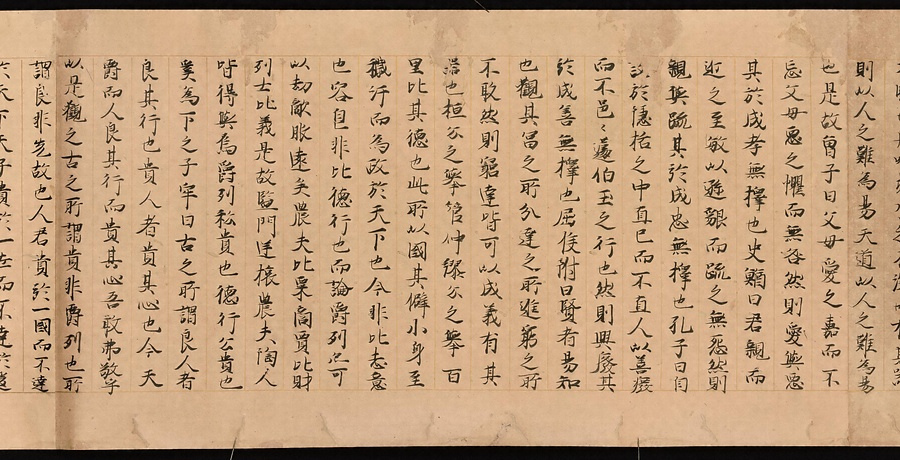 則以人之難為易天道以人之難為易
也是故曾子曰父母愛之嘉而不
忘父母惡之懼而無咎然則愛與惡
其於成孝無擇也史鰌曰君親而
近之至敏以遜貌而踈之無怨然則
親與踈其於成忠無擇也孔子曰自
於檃栝之中直己而不直人以善廢
而不邑々蘧伯玉之行也然則興廢其
於成善無擇也屈侯附曰賢者易知
也觀其富之所分達之所進窮之所
不取然則窮達皆可以成義有其
器也桓公之舉管仲繆公之舉百
里比其德也此所以國其僻小身至
穢汙而為政於天下也今非比志意
也容自非比德行也而論爵列亦可
以却敵服遠矣農夫比粟商賈比財
列士比義是故監門逆旅農夫陶人
皆得與焉爵列私貴也德行公貴也
奚為下之子罕曰古之所謂良人者
良其行也貴人者貴其心也今天
爵而人良其行而貴其心吾敢弗敬乎
以是觀之古之所謂貴非爵列也所
謂良非先故也人君貴於一國而不達
於天下天子貴於一世而不達於後